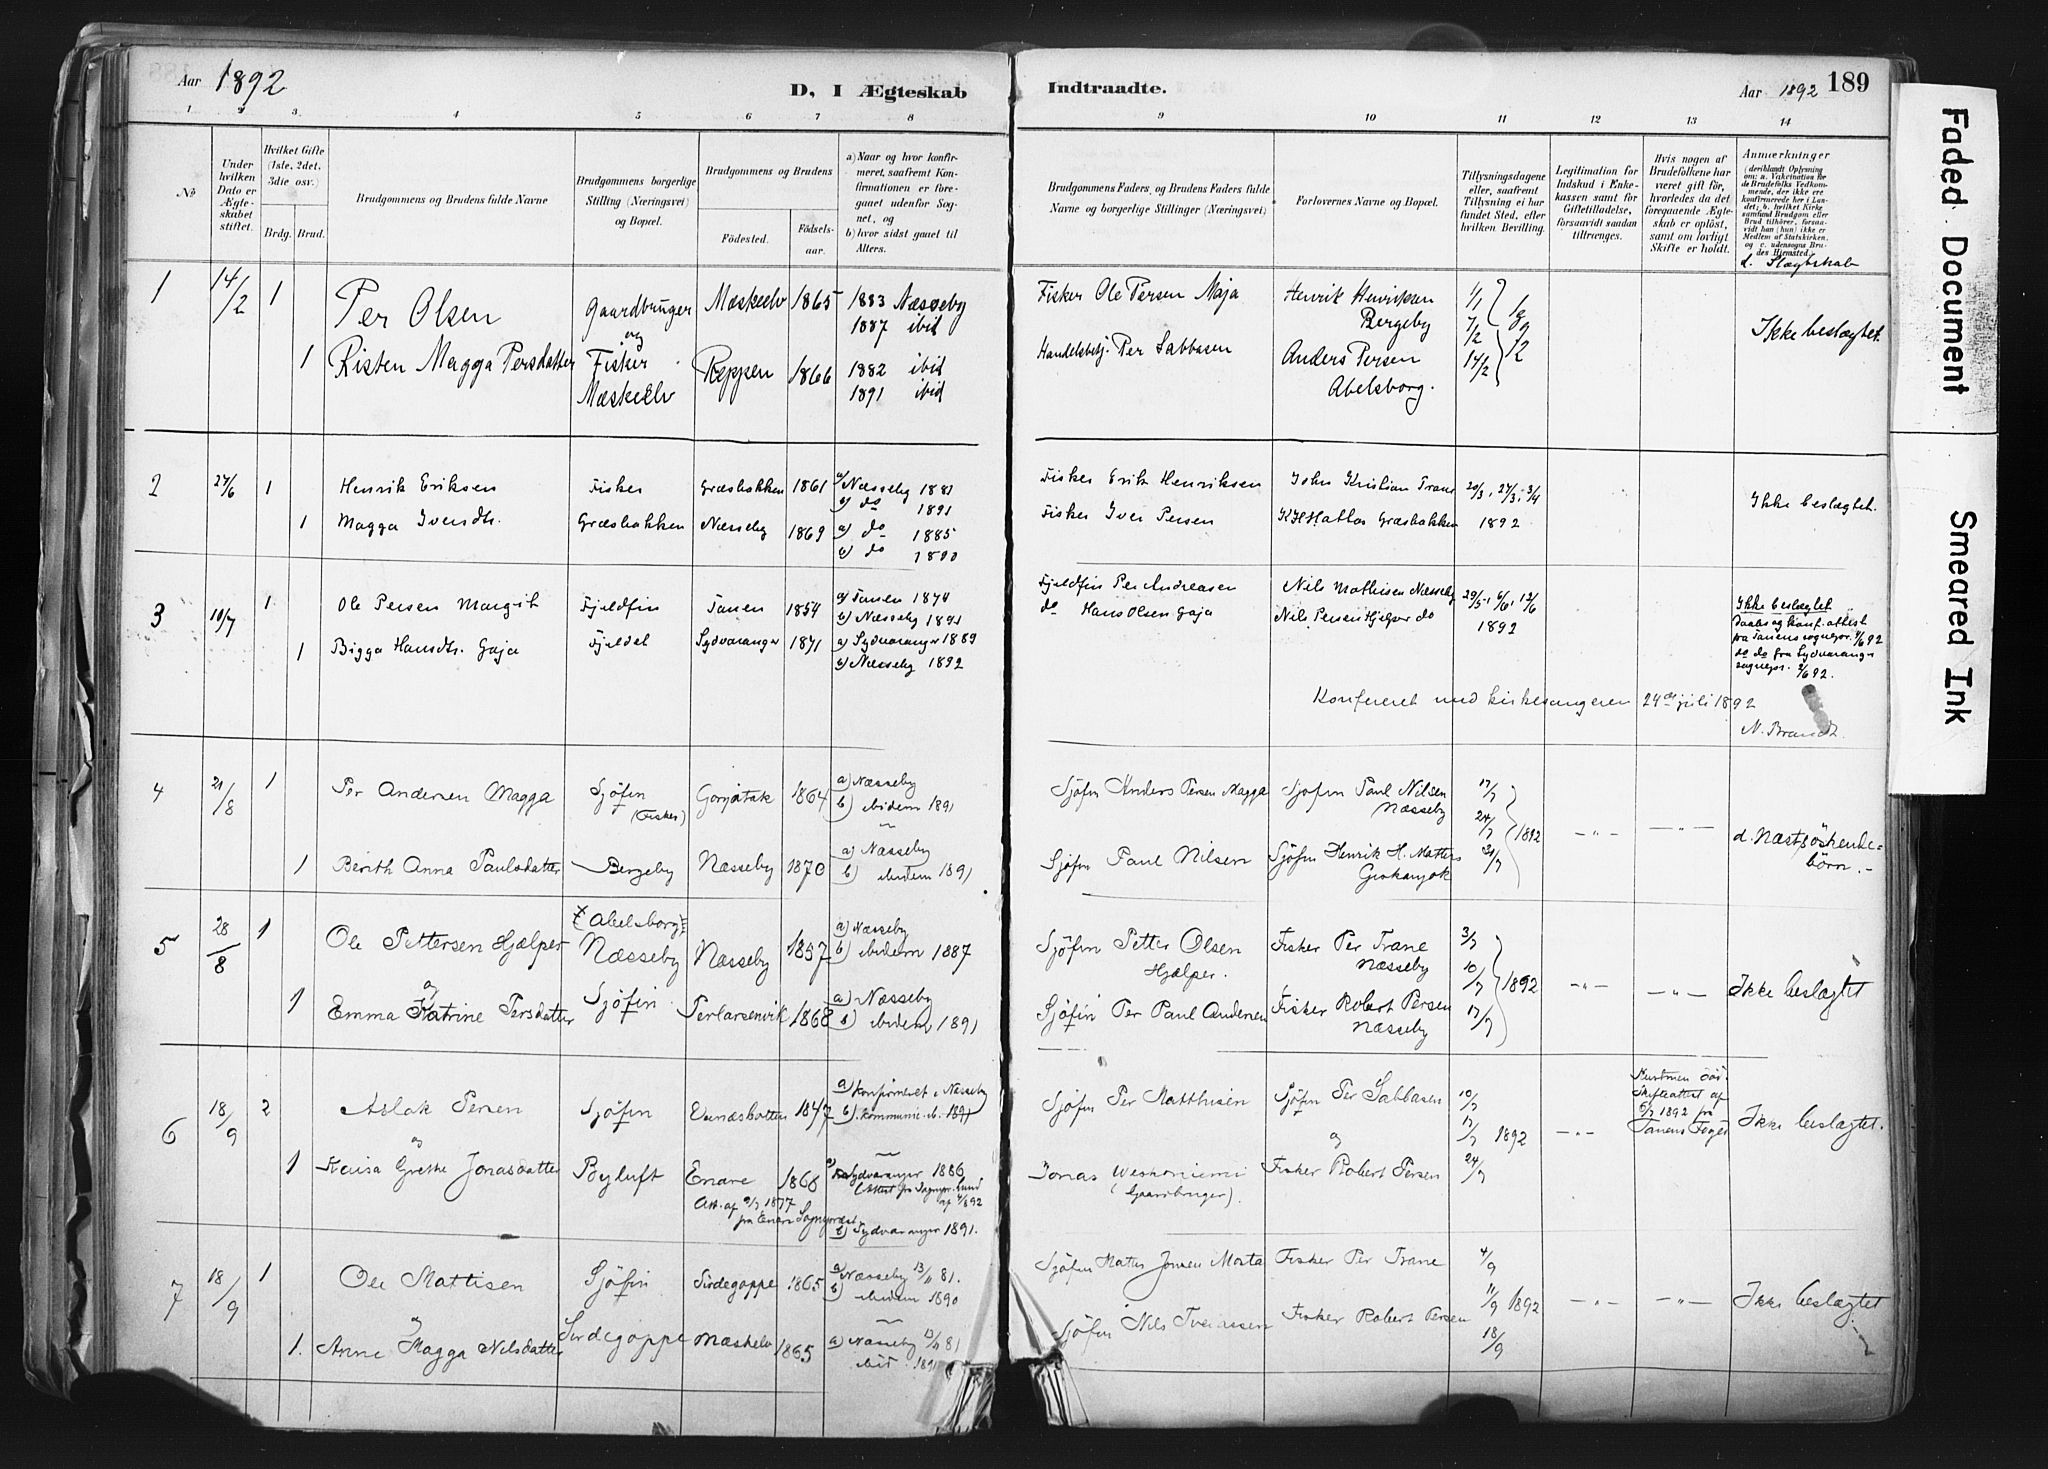 Aar 1892
D, I Ægteskab
Indtraadte.
Aar 1892 189
1 2 3 4 5 6 7 8 9 10 11 12 13 14
No
Under hvilken Dato er Ægte-skabet stiftet.
Hvilket Gifte (1ste, 2det, 3die osv.)
Brdg. Brud.
Brudgommens og Brudens fulde Navne
Brudgommens borgerlige Stilling (Næringsvei) og Bopæl.
Brudgommens og Brudens
Födested. Födsels-aar.
a) Naar og hvor konfir-meret, saafremt Kon-firmationen er fore-gaaet udenfor Sog-net, og
b) hvor sidst gaaet til Alters.
Brudgommens Faders, og Brudens Faders fulde Navne og borgerlige Stillinger (Næringsvei)
Forlovernes Navne og Bopæl.
Tillysningsdagene eller, saafremt Tillysning ei har fundet Sted, efter hvilken Bevilling.
Legitimation for Indskud i Enke-kassen samt for Giftetilladelse, forsaavidt saadan tiltrænges.
Hvis nogen af Brudefolkene har været gift för, hvorledes da det foregaaende Ægte-skab er oplöst, samt om lovligt Skifte er holdt.
Anmærkninger
(deriblandt Oplysning om: a. Vakcination for de Brudefolks Vedkom-mende, der ikke ere konfirmerede her i Lan-det; b. hvilket Kirke samfund Brudgom eller Brud tilhörer, forsaa-vidt han (hun) ikke er Medlem af Statskirken, og c. udensogns Bru-des Hjemsted.)
d. Slægtskab
1 14/2 1 Per Olsen Gaardbruger Mæskeelv 1865 1883 Næsseby
1887 ibid
og
1 Kristen Magga Persdatter Fisker Reppen 1866 1882 ibid
Mæskeelv 1891 ibid
Fisker Ole Persen Maja Henrik Henriksen 1/1
Bergeby 7/2
Handelsbetj. Per Sabbasen Anders Persen 14/2
Abelsborg.
Ikke beslægtet.
2 24/6 1 Henrik Eriksen Fisker Græsbakken 1861 a) Næsseby 1881
b) do 1891
1 Magga Iversdtr. Græsbakken Næsseby 1869 a) do 1885
b) do 1890
Fisker Erik Henriksen John Kristian Trane 20/3, 27/3, 3/4
Fisker Iver Persen Græsbakken 1892
Ikke beslægtet.
3 10/7 1 Ole Persen Margit Fjeldfin Tanen 1854 a) Tanen 1874
b) Næsseby 1891
1 Bigga Hansdtr. Gaja Fjeldet Sydvaranger 1871 a) Sydvaranger 1889
b) Næsseby 1892
Fjeldfin Per Andreasen Nils Mathisen Næsseby 29/5, 6/6, 12/6
do Hans Olsen Gaja Nils Persen Hjelper do 1892
Ikke beslægtet
Daabs og konf. attest
fra Tanens sognepr. 92
do do fra Sydvaranger
sognepr. 2/6 92.
Konfereret med kirkesangeren 24de juli 1892
N. Brandt.
4 21/8 1 Per Andersen Magga Sjöfin Gorgatak 1864 a) Næsseby
(Fisker) b) ibidem 1891
1 Berith Anna Paulsdatter Bergeby Næsseby 1870 a) Næsseby
b) ibidem 1891
Sjöfin Anders Persen Magga Sjöfin Paul Nilsen 17/7
Næsseby 24/7 1892 -"- -"-
Sjöfin Paul Nilsen Sjöfin Henrik H. Matters 31/7
d. Næstsöskende-
börn.-
5 28/8 1 (Abelsborg)
Ole Pettersen Hjælper Næsseby Næsseby 1857 a) Næsseby
b) ibidem 1887
og
1 Emma Katrine Persdatter Sjöfin Perlarsenvik 1868 a) Næsseby
b) ibidem 1891
Sjöfin Petter Olsen Fisker Per Trane 3/7
Hjælper. Næsseby 10/7 1892 -"- -"-
Sjöfin Per Paul Andersen Fisker Robert Persen 17/7
Næsseby
Ikke beslægtet
6 18/9 2 Aslak Persen Sjöfin 1847 a) Konfirmeret i Næsseby
b) kommunic. ib. 1891
og
1 Kaisa Grethe Jonasdatter Byluft Enare 1868 Sydvaranger 1886
Att. af 9/7 1877
b) Sydvaranger 1891.
Sjöfin Per Matthisen Sjöfin Per Sabbasen 10/7
og 17/7 1892 -"-
Jonas Fisker Robert Persen 24/7
(Gaardbruger).
Skifteattest af
6/7 1892 fra
Tanens Foged
Ikke beslægtet.
7 18/9 1 Ole Mattisen Sjöfin Sirdegoppe 1865 a) Næsseby 13/11 81.
b) ibidem 1890
og
1. Anne Magga Nilsdatter Sirdegoppe Mæskelv 1865 a) Næsseby 13/11 81
ibid 1891
Sjöfin Mattis Jonsen Mosta Fisker Per Trane 4/9
11/9 1892 -"- -"-
Sjöfin Nils Iversen Fisker Robert Persen 18/9
Ikke beslægtet
Faded Document
Smeared Ink